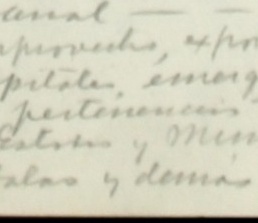 anal — —
aprovecho, expo
pitales, emerg
pertenencias
Estados y Mun
alas y demás